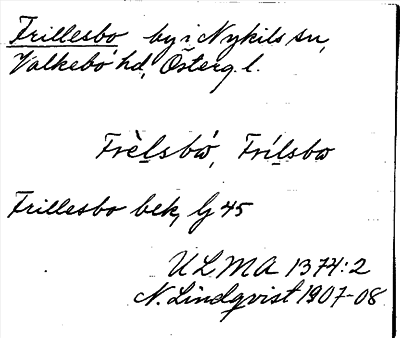 Frillesbo by i Nykils sn,
Valkebo hd, Österg. l.
Frèlsbω, Frílsbω
Frillesbo bek, lj 45
ULMA 1374:2
N. Lindqvist 1907-08